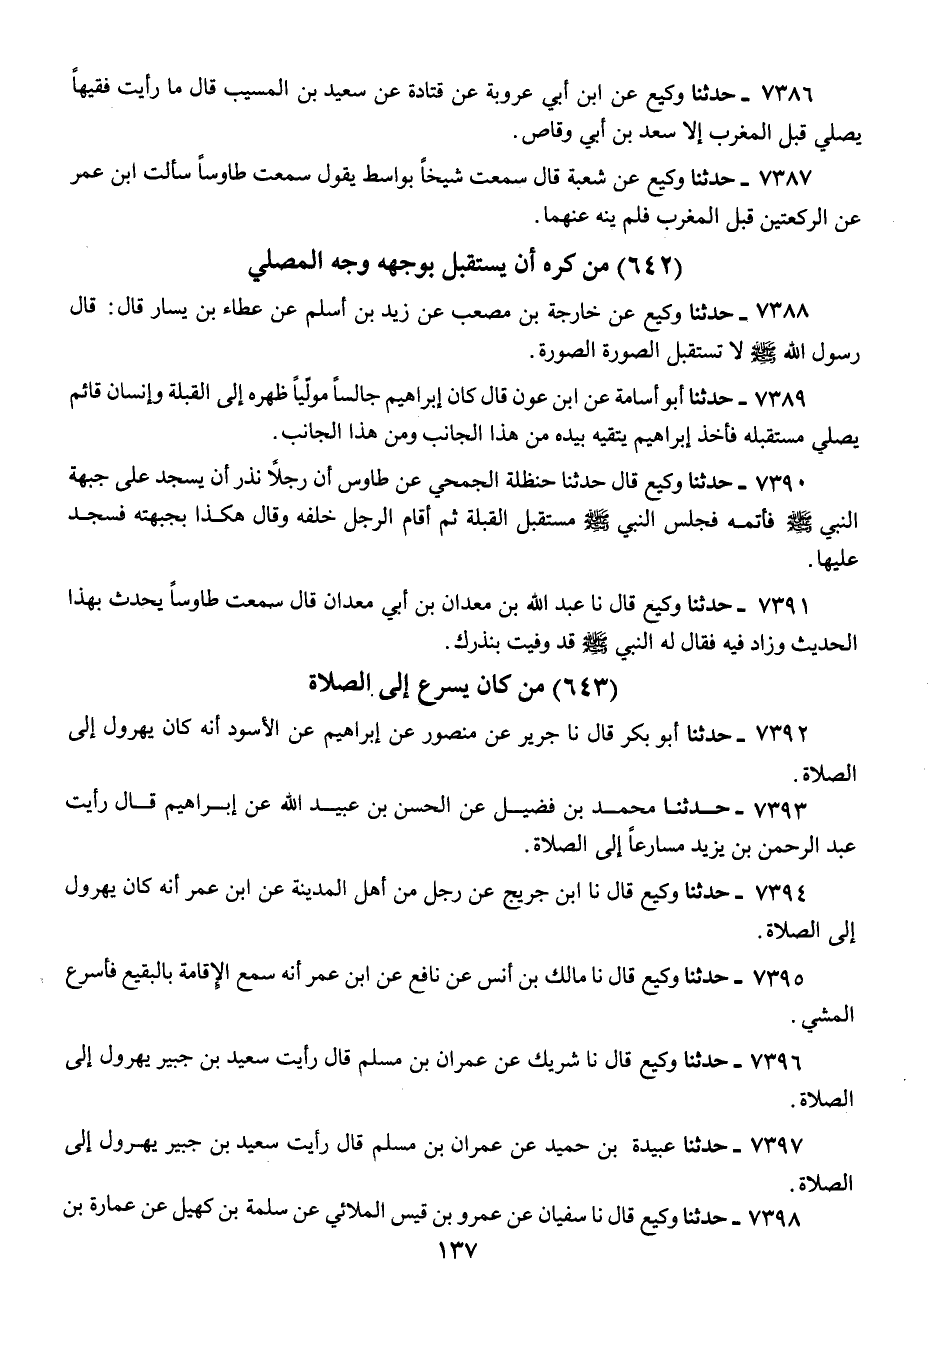 ٧٣٨٦ ـ حدثنا وكيع عن ابن أبي عروبة عن قتادة عن سعيد بن المسيب قال ما رأيت فقيهاً
يصلي قبل المغرب إلا سعد بن أبي وقاص.
٧٣٨٧ ـ حدثنا وكيع عن شعبة قال سمعت شيخاً بواسط يقول سمعت طاوساً سألت ابن عمر
عن الركعتين قبل المغرب فلم ينه عنهما.
(٦٤٢) من كره أن يستقبل بوجهه وجه المصلي
٧٣٨٨ ـ حدثنا وكيع عن خارجة بن مصعب عن زيد بن أسلم عن عطاء بن يسار قال: قال
رسول الله ﷺ لا تستقبل الصورة الصورة.
٧٣٨٩ ـ حدثنا أبو أسامة عن ابن عون قال كان إبراهيم جالساً مولّياً ظهره إلى القبلة وإنسان قائم
يصلي مستقبله فأخذ إبراهيم يتقيه بيده من هذا الجانب ومن هذا الجانب.
٧٣٩٠ ـ حدثنا وكيع قال حدثنا حنظلة الجمحي عن طاوس أن رجلاً نذر أن يسجد على جبهة
النبي ﷺ فأتمه فجلس النبي ﷺ مستقبل القبلة ثم أقام الرجل خلفه وقال هكذا بجبهته فسجد
عليها.
٧٣٩١ ـ حدثنا وكيع قال نا عبد الله بن معدان بن أبي معدان قال سمعت طاوساً يحدث بهذا
الحديث وزاد فيه فقال له النبي ﷺ قد وفيت بنذرك.
(٦٤٣) من كان يسرع إلى الصلاة
٧٣٩٢ ـ حدثنا أبو بكر قال نا جرير عن منصور عن إبراهيم عن الأسود أنه كان يهرول إلى
الصلاة.
٧٣٩٣ ـ حدثنا محمد بن فضيل عن الحسن بن عبيد الله عن إبراهيم قال رأيت
عبد الرحمن بن يزيد مسارعاً إلى الصلاة.
٧٣٩٤ ـ حدثنا وكيع قال نا ابن جريج عن رجل من أهل المدينة عن ابن عمر أنه كان يهرول
إلى الصلاة.
٧٣٩٥ ـ حدثنا وكيع قال نا مالك بن أنس عن نافع عن ابن عمر أنه سمع الإقامة بالبقيع فأسرع
المشي.
٧٣٩٦ ـ حدثنا وكيع قال نا شريك عن عمران بن مسلم قال رأيت سعيد بن جبير يهرول إلى
الصلاة.
٧٣٩٧ ـ حدثنا عبيدة بن حميد عن عمران بن مسلم قال رأيت سعيد بن جبير يهرول إلى
الصلاة.
٧٣٩٨ ـ حدثنا وكيع قال نا سفيان عن عمرو بن قيس الملائي عن سلمة بن كهيل عن عمارة بن
١٣٧